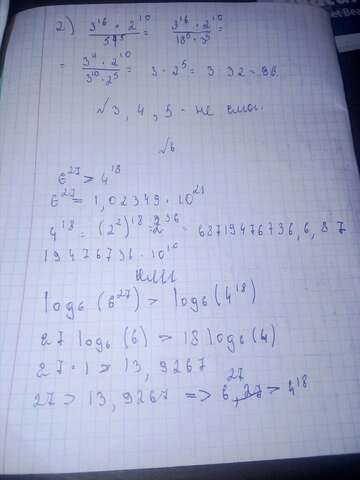 2) 3^16 · 2^10 / 54^5 = 3^16 · 2^10 / 18^5 · 3^5 =
= 3^11 · 2^10 / 3^10 · 2^5 = 3 · 2^5 = 3 · 32 = 96.
√3, 4, 5 - не смог.
√6
6^27 > 4^18
6^27 = 1,02349 · 10^21
4^18 = (2^2)^18 = 2^36 = 68719476736, 6,87
19476736 · 10^10
или
log6 (6^27) > log6 (4^18)
27 log6 (6) > 18 log6 (4)
27 · 1 > 13,9267
27 > 13,9267 => 6^27 > 4^18